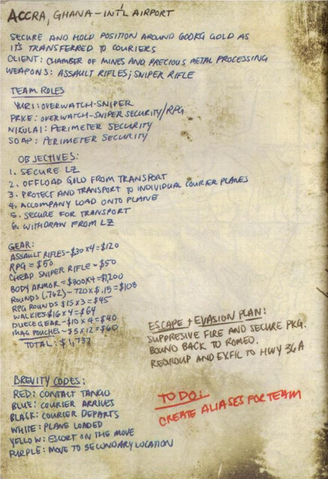 ACCRA, GHANA - INT'L AIRPORT
SECURE AND HOLD POSITION AROUND 600KG GOLD AS
IT'S TRANSFERRED TO COURIERS
CLIENT: CHAMBER OF MINES AND PRECIOUS METAL PROCESSING
WEAPONS: ASSAULT RIFLES; SNIPER RIFLE
TEAM ROLES
YURI: OVERWATCH - SNIPER
PRICE: OVERWATCH - SNIPER SECURITY/RPG
NIKOLAI: PERIMETER SECURITY
SOAP: PERIMETER SECURITY
OBJECTIVES:
1. SECURE LZ
2. OFFLOAD GOLD FROM TRANSPORT
3. PROTECT AND TRANSPORT TO INDIVIDUAL COURIER PLANES
4. ACCOMPANY LOAD ONTO PLANE
5. SECURE FOR TRANSPORT
6. WITHDRAW FROM LZ
GEAR:
ASSAULT RIFLES - $30 X 4 = $120
RPG = $50
CHEAP SNIPER RIFLE - $50
BODY ARMOR - $300 X 4 = $1200
ROUNDS (.762) - 720 X $.15 = $108
RPG ROUNDS $15 X 3 = $45
WALKIES $16 X 4 = $64
DURESS GEAR - $10 X 4 = $40
MAG POUCHES - $5 X 12 = $60
TOTAL: $1,737
ESCAPE + EVASION PLAN:
SUPPRESSIVE FIRE AND SECURE PKG.
BOUND BACK TO ROMEO.
REGROUP AND EXFIL TO HWY 36A
BREVITY CODES:
RED: CONTACT TANGO
BLUE: COURIER ARRIVES
BLACK: COURIER DEPARTS
WHITE: PLANE LOADED
YELLOW: ESCORT ON THE MOVE
PURPLE: MOVE TO SECONDARY LOCATION
TO DO:
CREATE ALIASES FOR TEAM